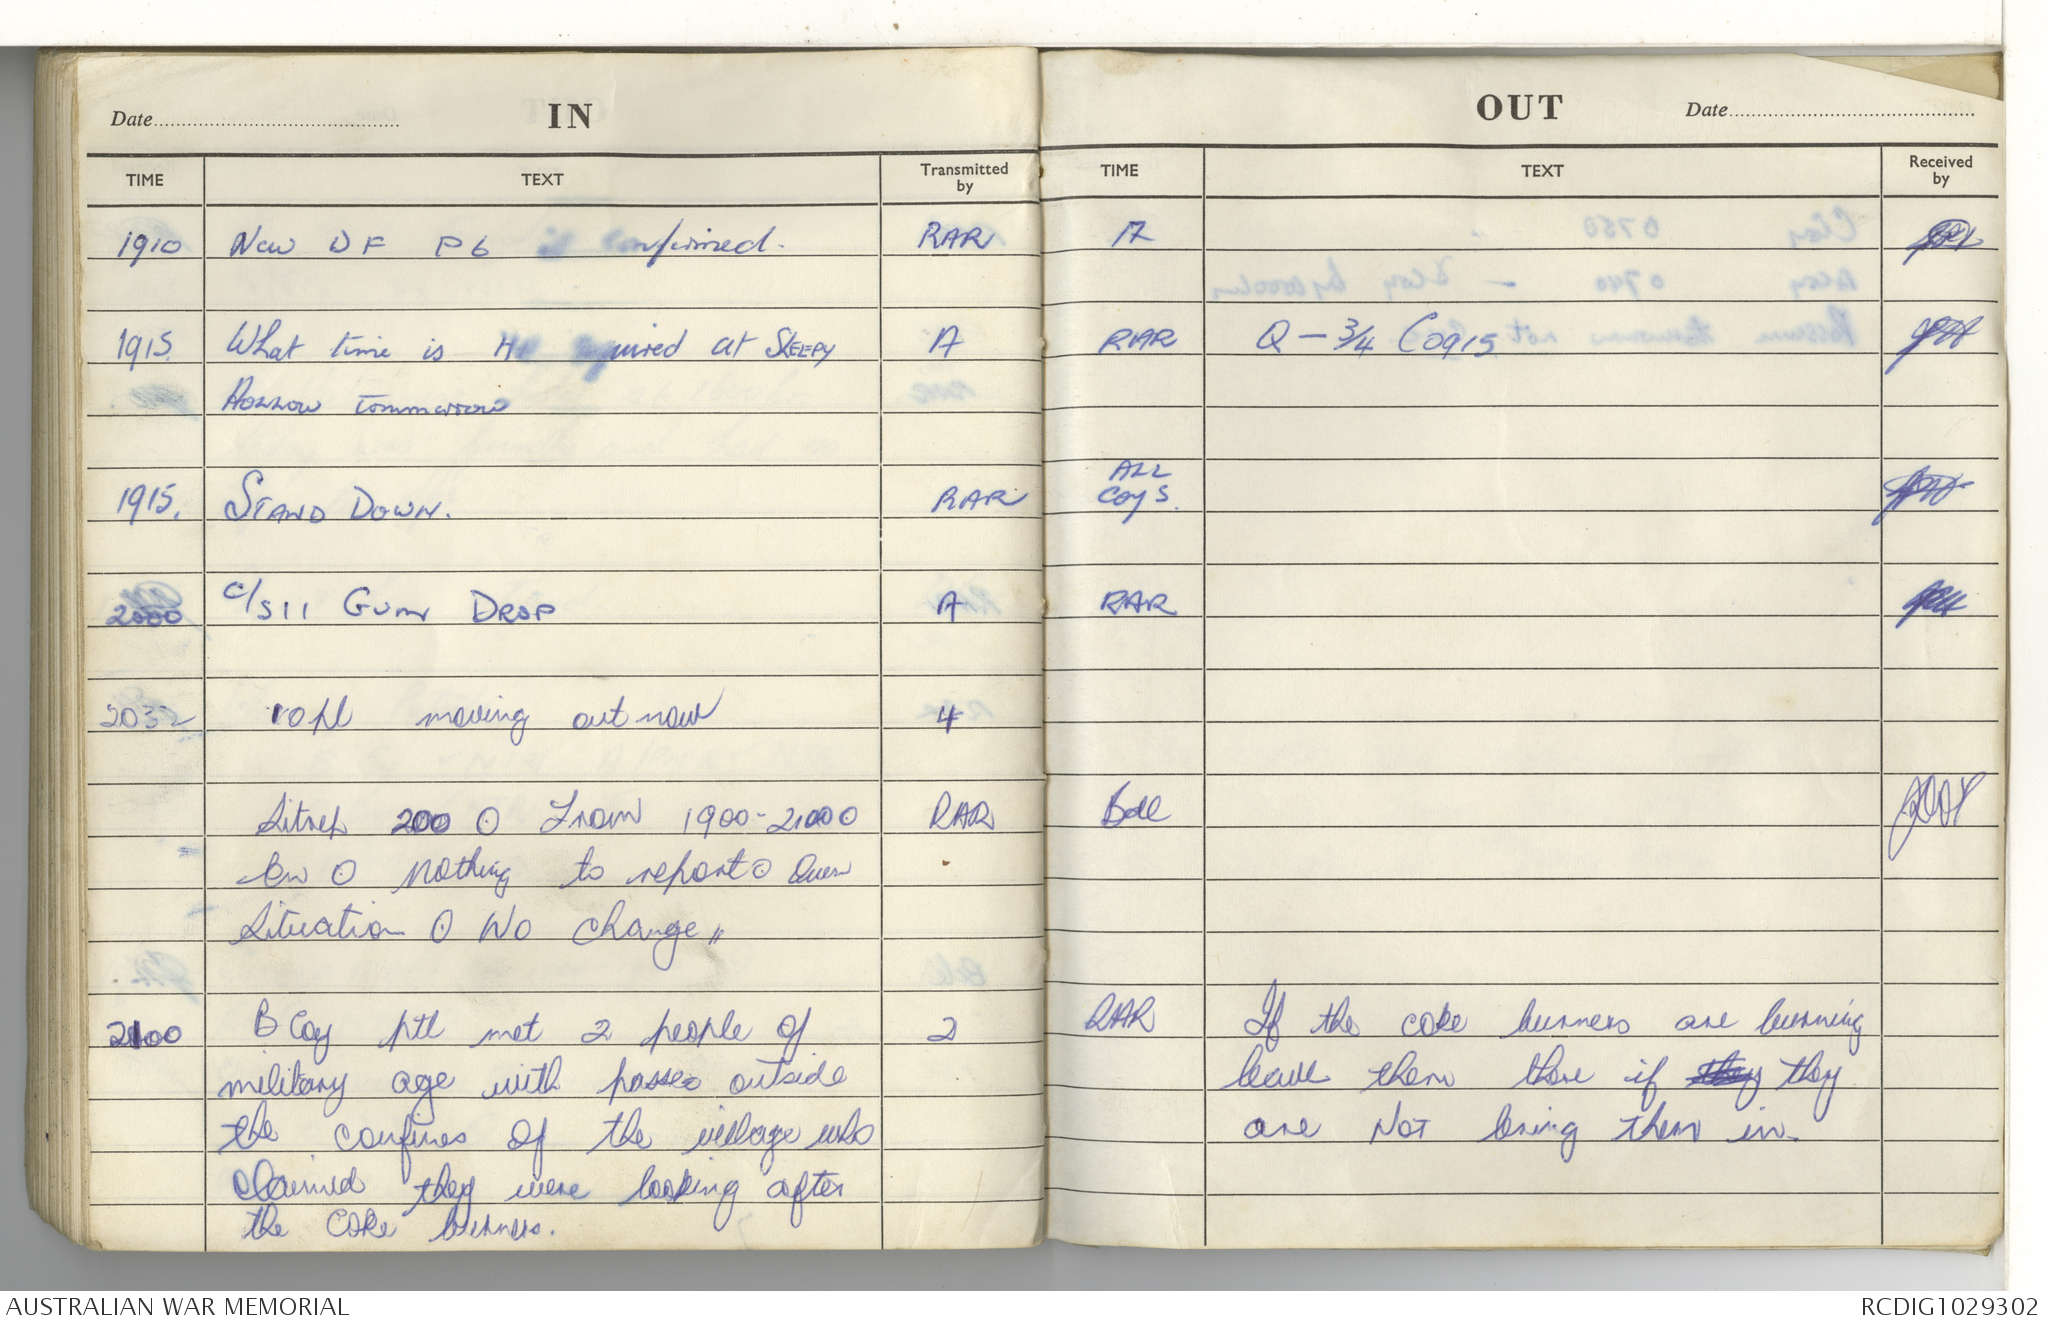 Date IN
TIME TEXT Transmitted by
1910 New DF P6 is confirmed. RAR
1915. What time is required at SLEEPY A
HOLLOW tommorrow
1915. STAND DOWN. RAR
2000 C/S 11 GUM DROP A
2032 10 pl moving out now 4
Sitrep 2000 O From 1900-2000 RAR
Bn O Nothing to report O Own
Situation O No change "
2100 B Coy ptl met 2 people of 2
military age with passes outside
the confines of the village who
claimed they were looking after
the coke burners.
OUT Date
TIME TEXT Received by
17
RAR Q - 3/4 C0915
ALL
COYS.
RAR
Bde
RAR If the coke burners are burning
leave them there if they
are NOT bring them in.
AUSTRALIAN WAR MEMORIAL RCDIG1029302